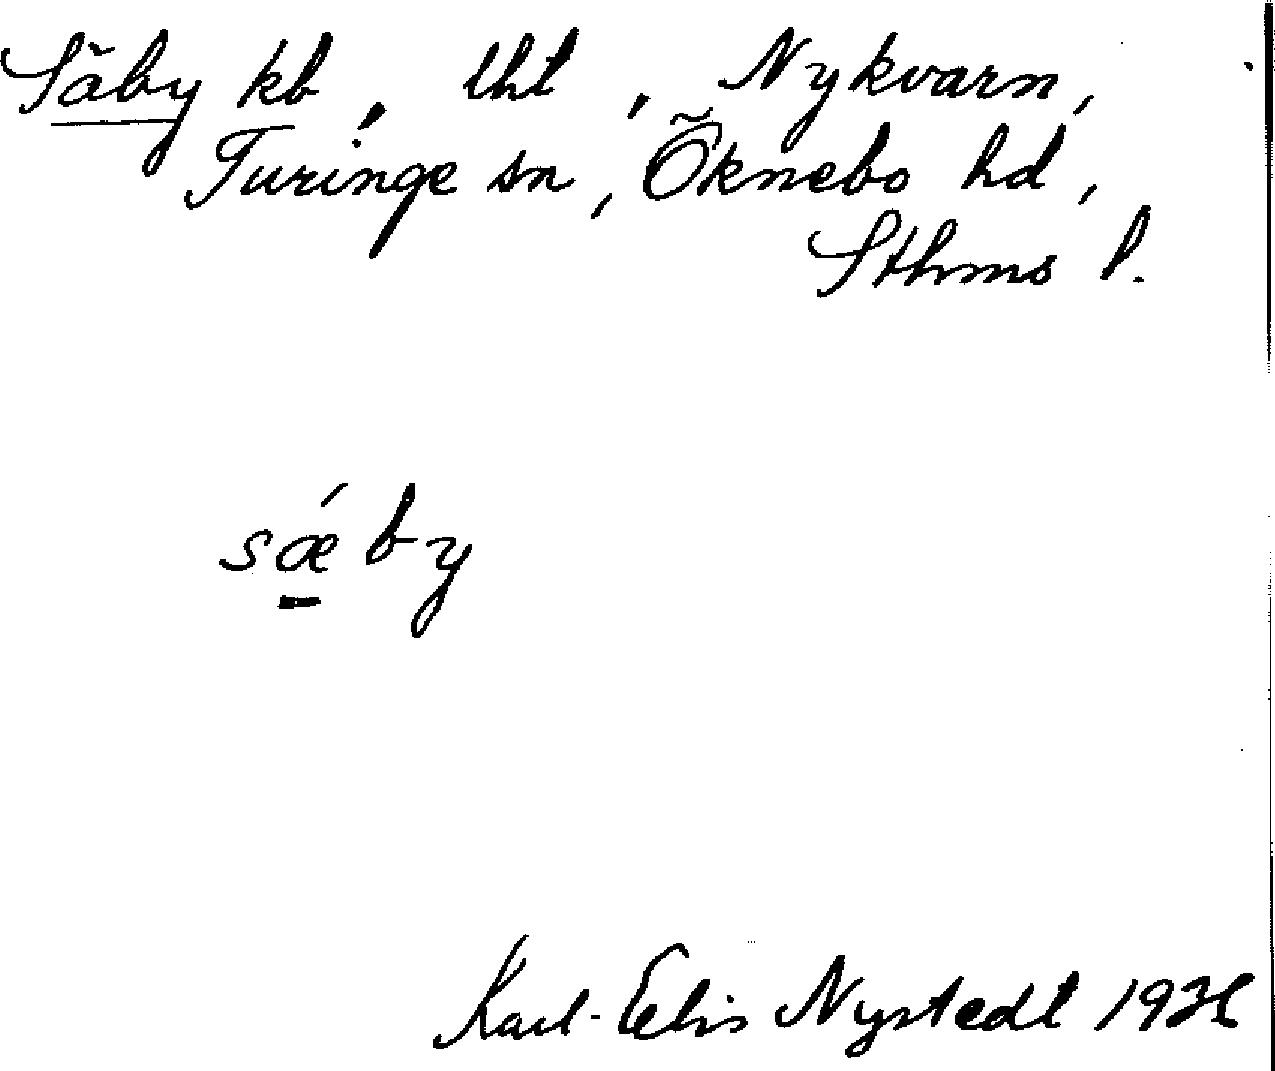 Säby kb, tht, Nykvarn,
Turinge sn, Öknebo hd,
Sthms l.
sǽby
Karl-Elis Nystedt